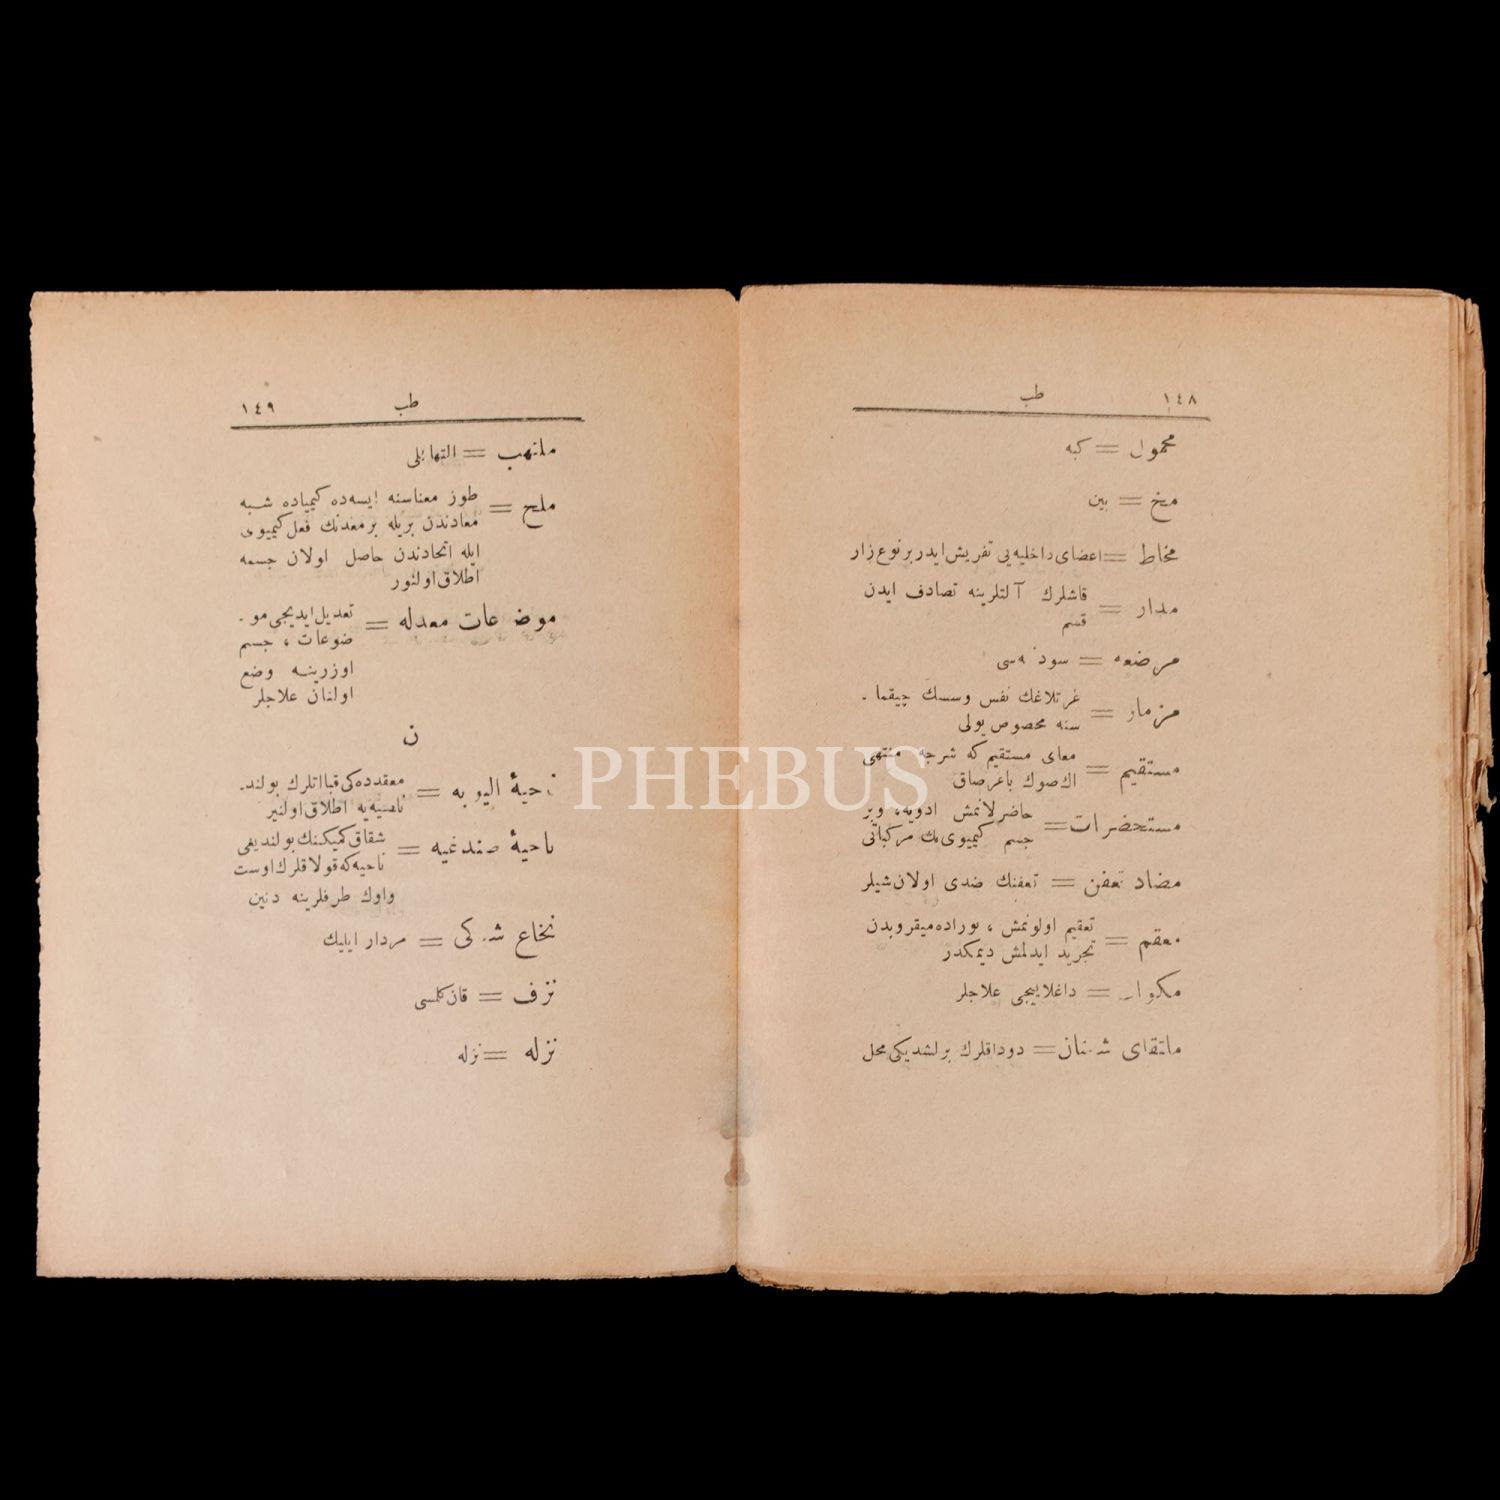 ١٤٨ طب
محمول = كبه
مخ = بين
مخاط = اعضاى داخليه يى تفريش ايدر بر نوع زار
مدار = قاشلرك آلتلرينه تصادف ايدن
قسم
مرضعه = سود نه سى
مزمار = غرتلاغك نفس وسسك چيقما .
سنه مخصوص يولى
مستقيم = معاى مستقيم كه شرجه منتهى
اك صوك باغرصاق
مستحضرات = حاضرلانمش ادويه، وبر
جسم كيميوى نك مركباتى
مضاد تعفن = تعفنك ضدى اولان شيلر
معقم = تعقيم اولونمش ، بوراده ميقروبدن
تجريد ايدلمش ديمكدر
= داغلاييجى علاجلر
= دوداقلرك برلشديكى محل
طب ١٤٩
ملتهب = التهابلى
ملح = طوز معناسنه ايسه ده كيمياده شبه
معادندن بريله بر معدنك فعل كيميوى
ايله اتحادندن حاصل اولان جسمه
اطلاق اولنور
موضعات معدله = تعديل ايديجى مو .
ضوعات ، جسم
اوزرينه وضع
اولنان علاجلر
ن
ناحيۀ اليويه = معقده كى قبااتلرك بولند.
ناصيه يه اطلاق اولنير
ناحيۀ صدغيه = شقاق كميكنك بولنديغى
ناحيه كه قولاقلرك اوست
واوك طرفلرينه دنين
نخاع شوكى = مردار ايليك
نزف = قان كلمسى
نزله = نزله
PHEBUS